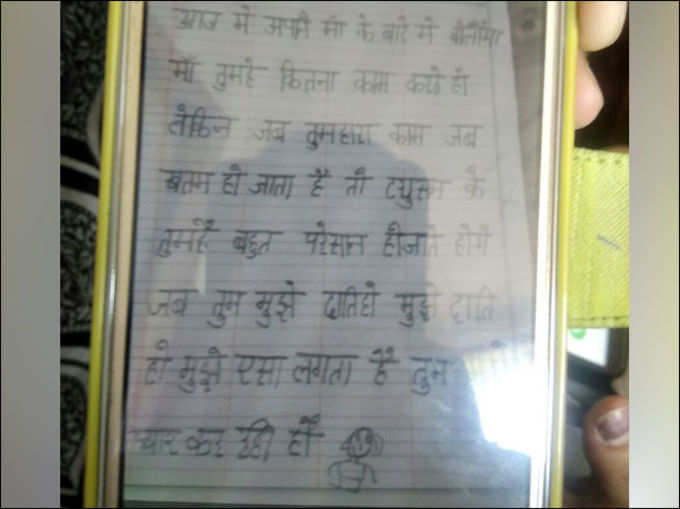 आज मे अपने माँ के बारे मे
माँ तुमहे कितना काम करते हो
लेकिन जब तुमहारा काम जब
खतम हो जाता है तो टयुसन के
तुमहै बहुत परेसान होजाते होगे
जब तुम मुझे दातिहो मुझे दाति
हो मुझे एसा लगता है तुम
प्यार कर रही हौ